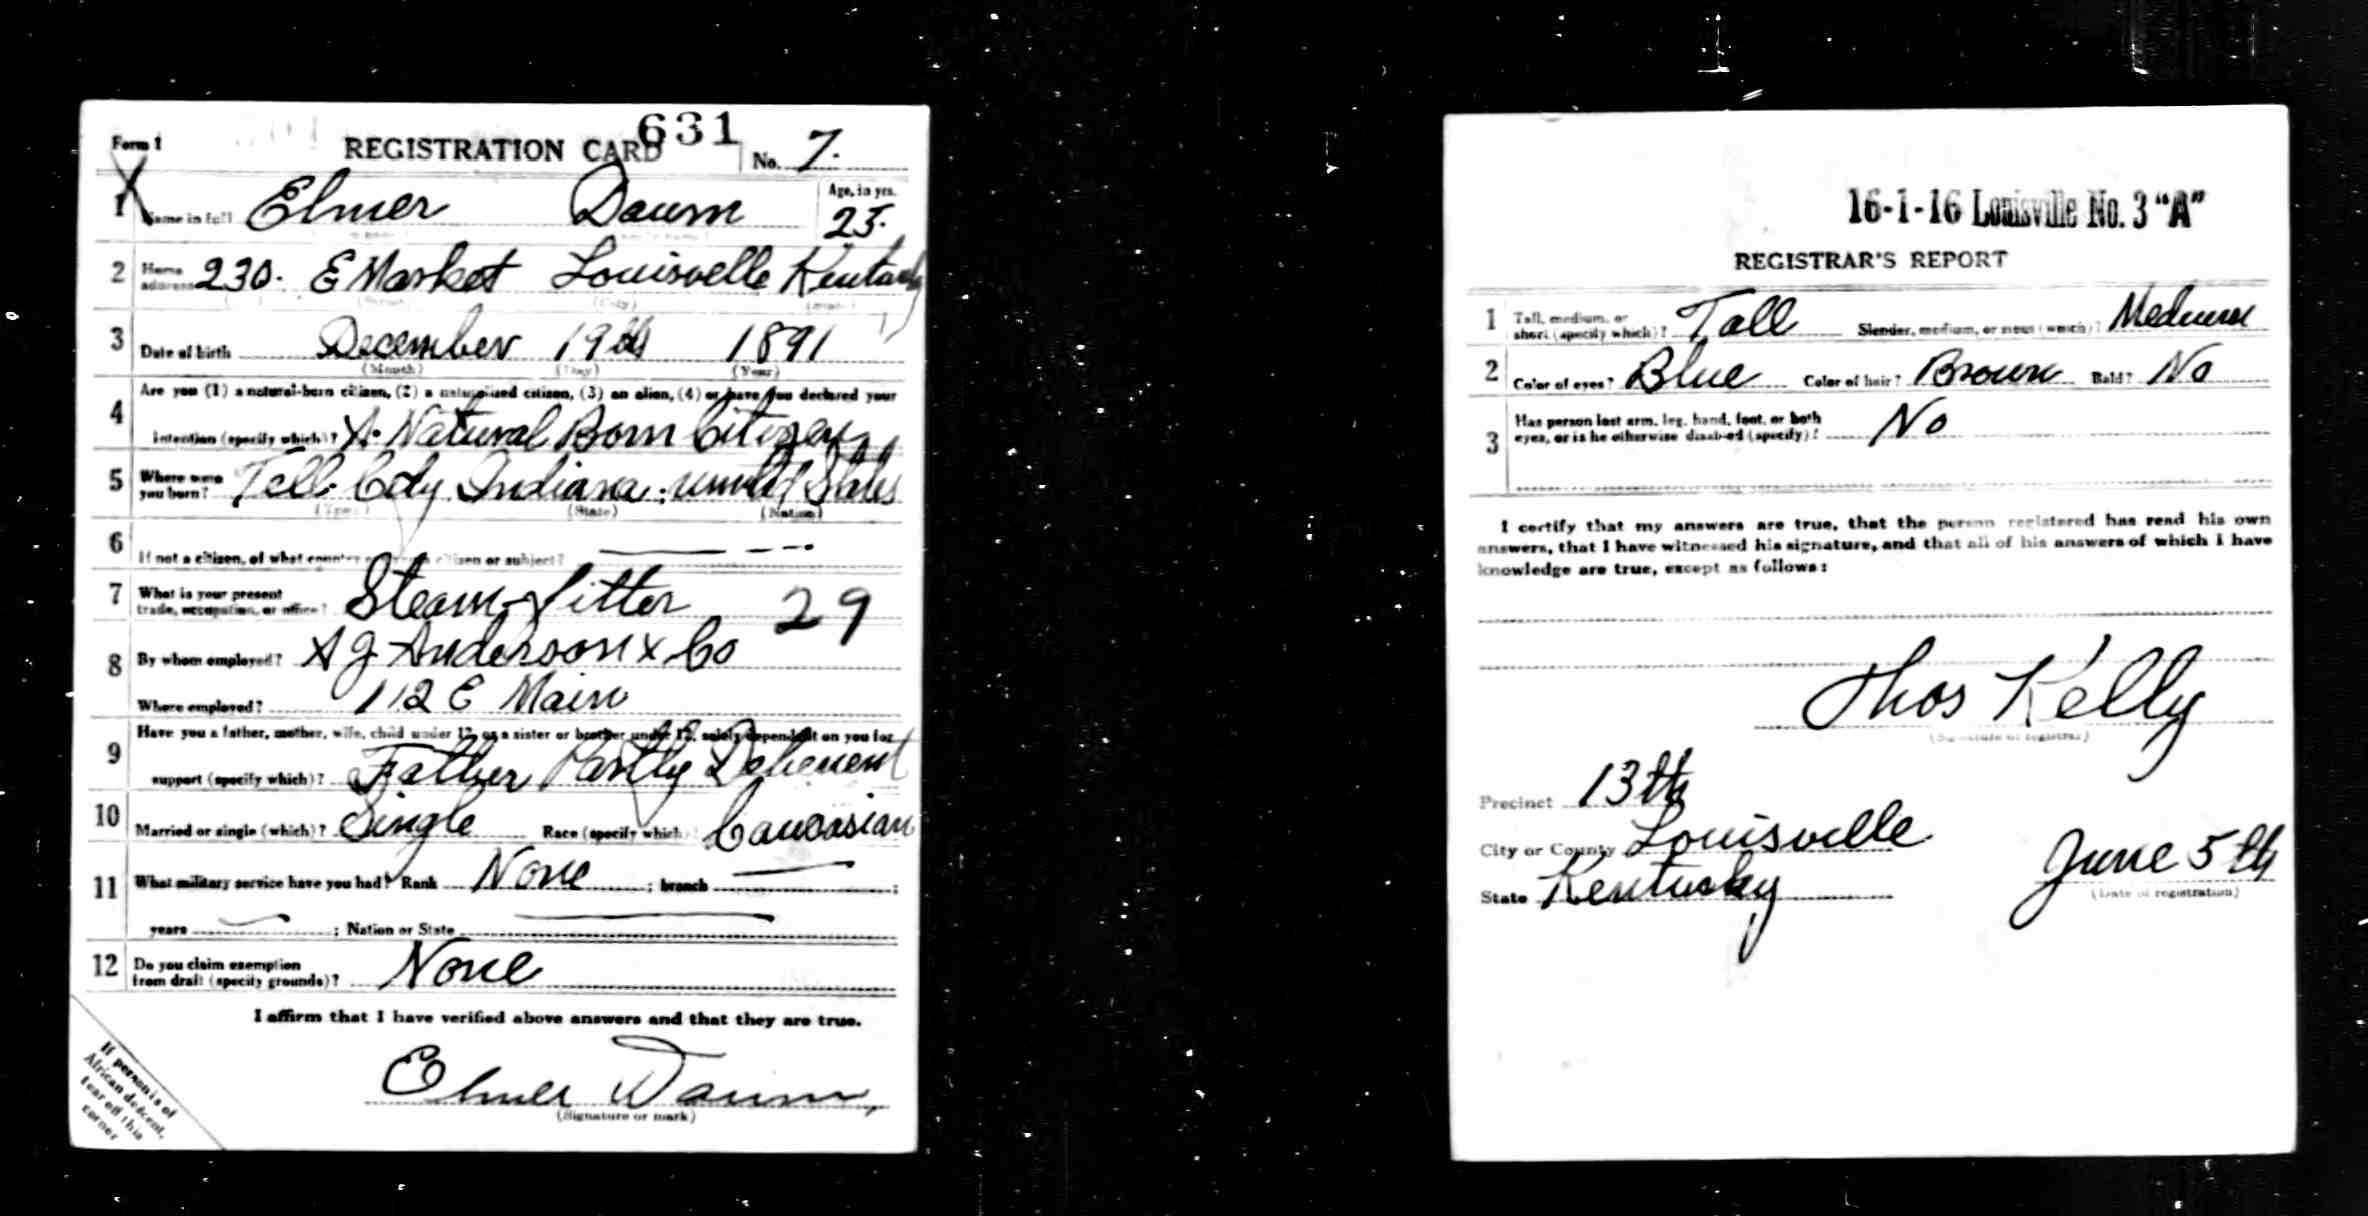 631
Form 1 REGISTRATION CARD No. 7.
1 Name in full Elmer Daum Age, in yrs. 25.
2 Home address 230. E Market Louisville Kentucky
3 Date of birth December 19th 1891
(Month) (Day) (Year)
4 Are you (1) a natural-born citizen, (2) a naturalized citizen, (3) an alien, (4) or have you declared your
intention (specify which)? A. Natural Born Citizen
5 Where were you born? Tell City Indiana; United States
(Town) (State) (Nation)
6 If not a citizen, of what country citizen or subject?
7 What is your present
trade, occupation, or office? Steam-Fitter 29
8 By whom employed? A J Anderson & Co
Where employed? 112 E Main
9 Have you a father, mother, wife, child under 12, or a sister or brother under 12, solely dependent on you for
support (specify which)? Father Partly Dependent
10 Married or single (which)? Single Race (specify which) Caucasian
11 What military service have you had? Rank None ; branch ;
years ; Nation or State
12 Do you claim exemption
from draft (specify grounds)? None
I affirm that I have verified above answers and that they are true.
Elmer Daum,
(Signature or mark)
If person is of
African descent,
tear off this
corner
16-1-16 Louisville No. 3 "A"
REGISTRAR'S REPORT
1 Tall, medium, or
short (specify which)? Tall Slender, medium, or stout (which)? Medium
2 Color of eyes? Blue Color of hair? Brown Bald? No
3 Has person lost arm, leg, hand, foot, or both
eyes, or is he otherwise disabled (specify)? No
I certify that my answers are true, that the person registered has read his own
answers, that I have witnessed his signature, and that all of his answers of which I have
knowledge are true, except as follows:
Thos Kelly
(Signature of registrar)
Precinct 13th
City or County Louisville
State Kentucky June 5th
(Date of registration)